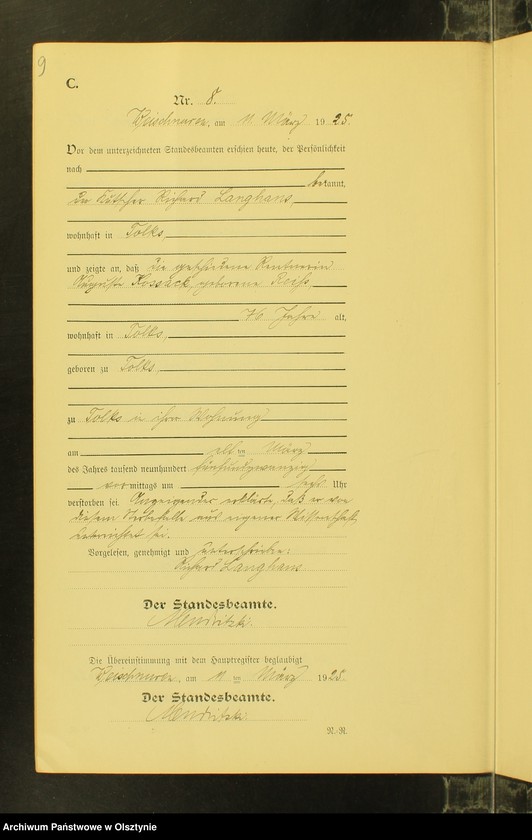 9
C.
Nr. 8.
am 11. März 1925.
Vor dem unterzeichneten Standesbeamten erschien heute, der Persönlichkeit
nach
bekannt,
der Kutscher Richard Langhans,
wohnhaft in Tolks,
und zeigte an, daß die geschiedene Rentnerin
Auguste Kossack, geborene
76 Jahre alt,
wohnhaft in Tolks,
geboren zu Tolks,
zu Tolks in ihrer Wohnung
am elften März
des Jahres tausend neunhundert fünfundzwanzig
vormittags um sechs Uhr
verstorben sei. Anzeigender erklärte, daß er von
diesem Sterbefalle aus eigener Wissenschaft
unterrichtet sei.
Vorgelesen, genehmigt und unterschrieben:
Richard Langhans
Der Standesbeamte.
Die Übereinstimmung mit dem Hauptregister beglaubigt
am 11. ten März 1925
Der Standesbeamte.
N.-R.
Archiwum Państwowe w Olsztynie